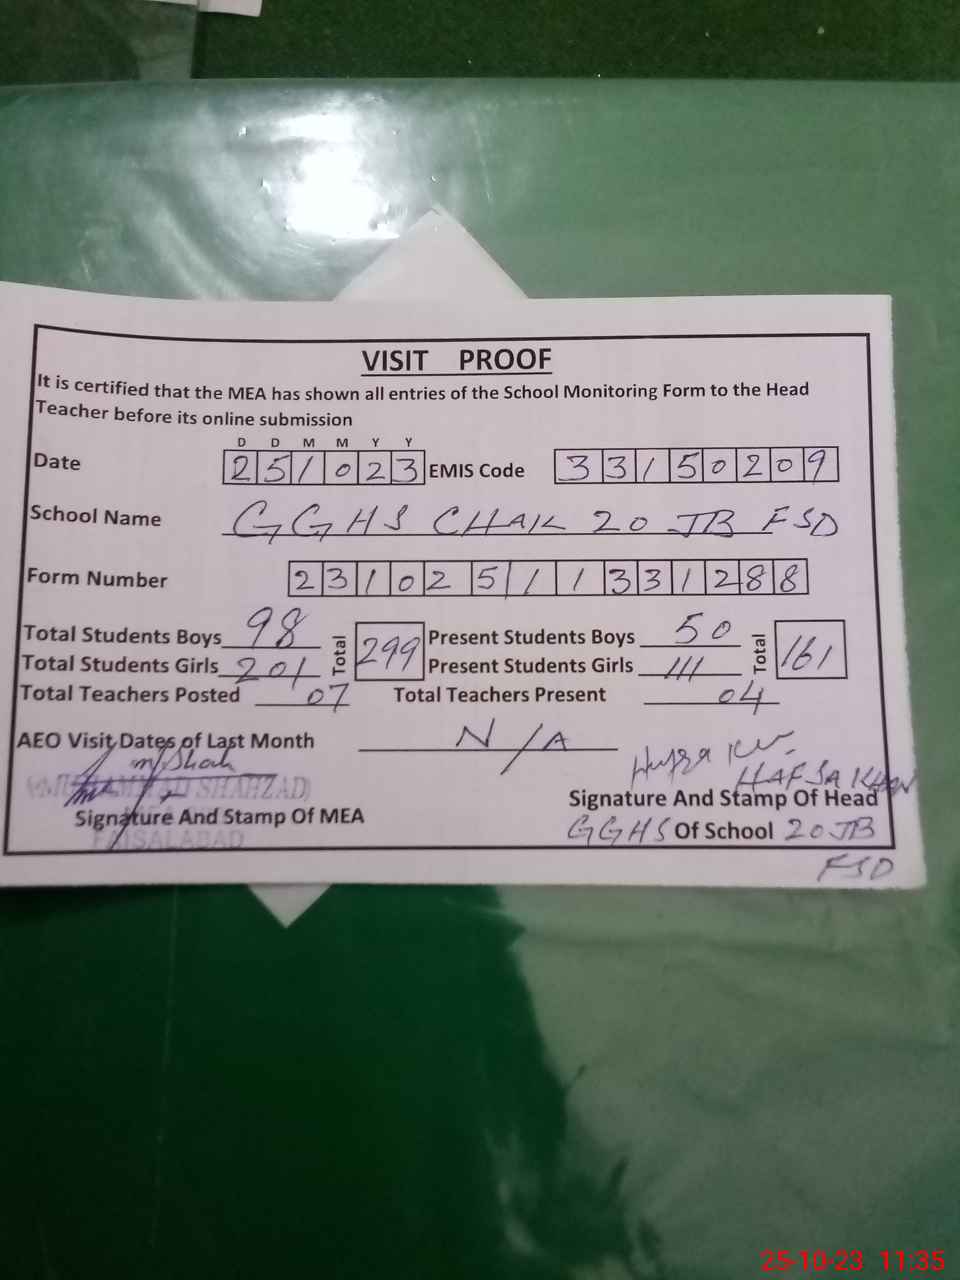 VISIT PROOF
It is certified that the MEA has shown all entries of the School Monitoring Form to the Head
Teacher before its online submission
D D M M Y Y
Date 251023 EMIS Code 33150209
School Name GGHS CHAK 20 JB FSD
Form Number 23102511331288
Total Students Boys 98 Total 299 Present Students Boys 50 Total 161
Total Students Girls 201 Present Students Girls 111
Total Teachers Posted 07 Total Teachers Present 04
AEO Visit Dates of Last Month N/A
m/Shah
(MUHAMMAD SHAHZAD) HAFSA KHAN
Signature And Stamp Of MEA Signature And Stamp Of Head
FAISALABAD GGHS Of School 20 JB
FSD
25-10-23 11:35